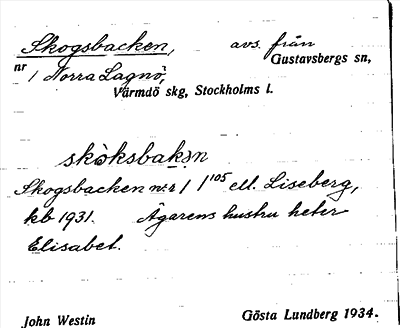 Skogsbacken, avs. från
Gustavsbergs sn,
nr 1 Norra Lagnö,
Värmdö skg, Stockholms l.
skòksbakən
Skogsbacken nr 1 1¹⁰⁵ ell. Liseberg,
kb 1931. Ägarens hustru heter
Elisabet.
John Westin Gösta Lundberg 1934.